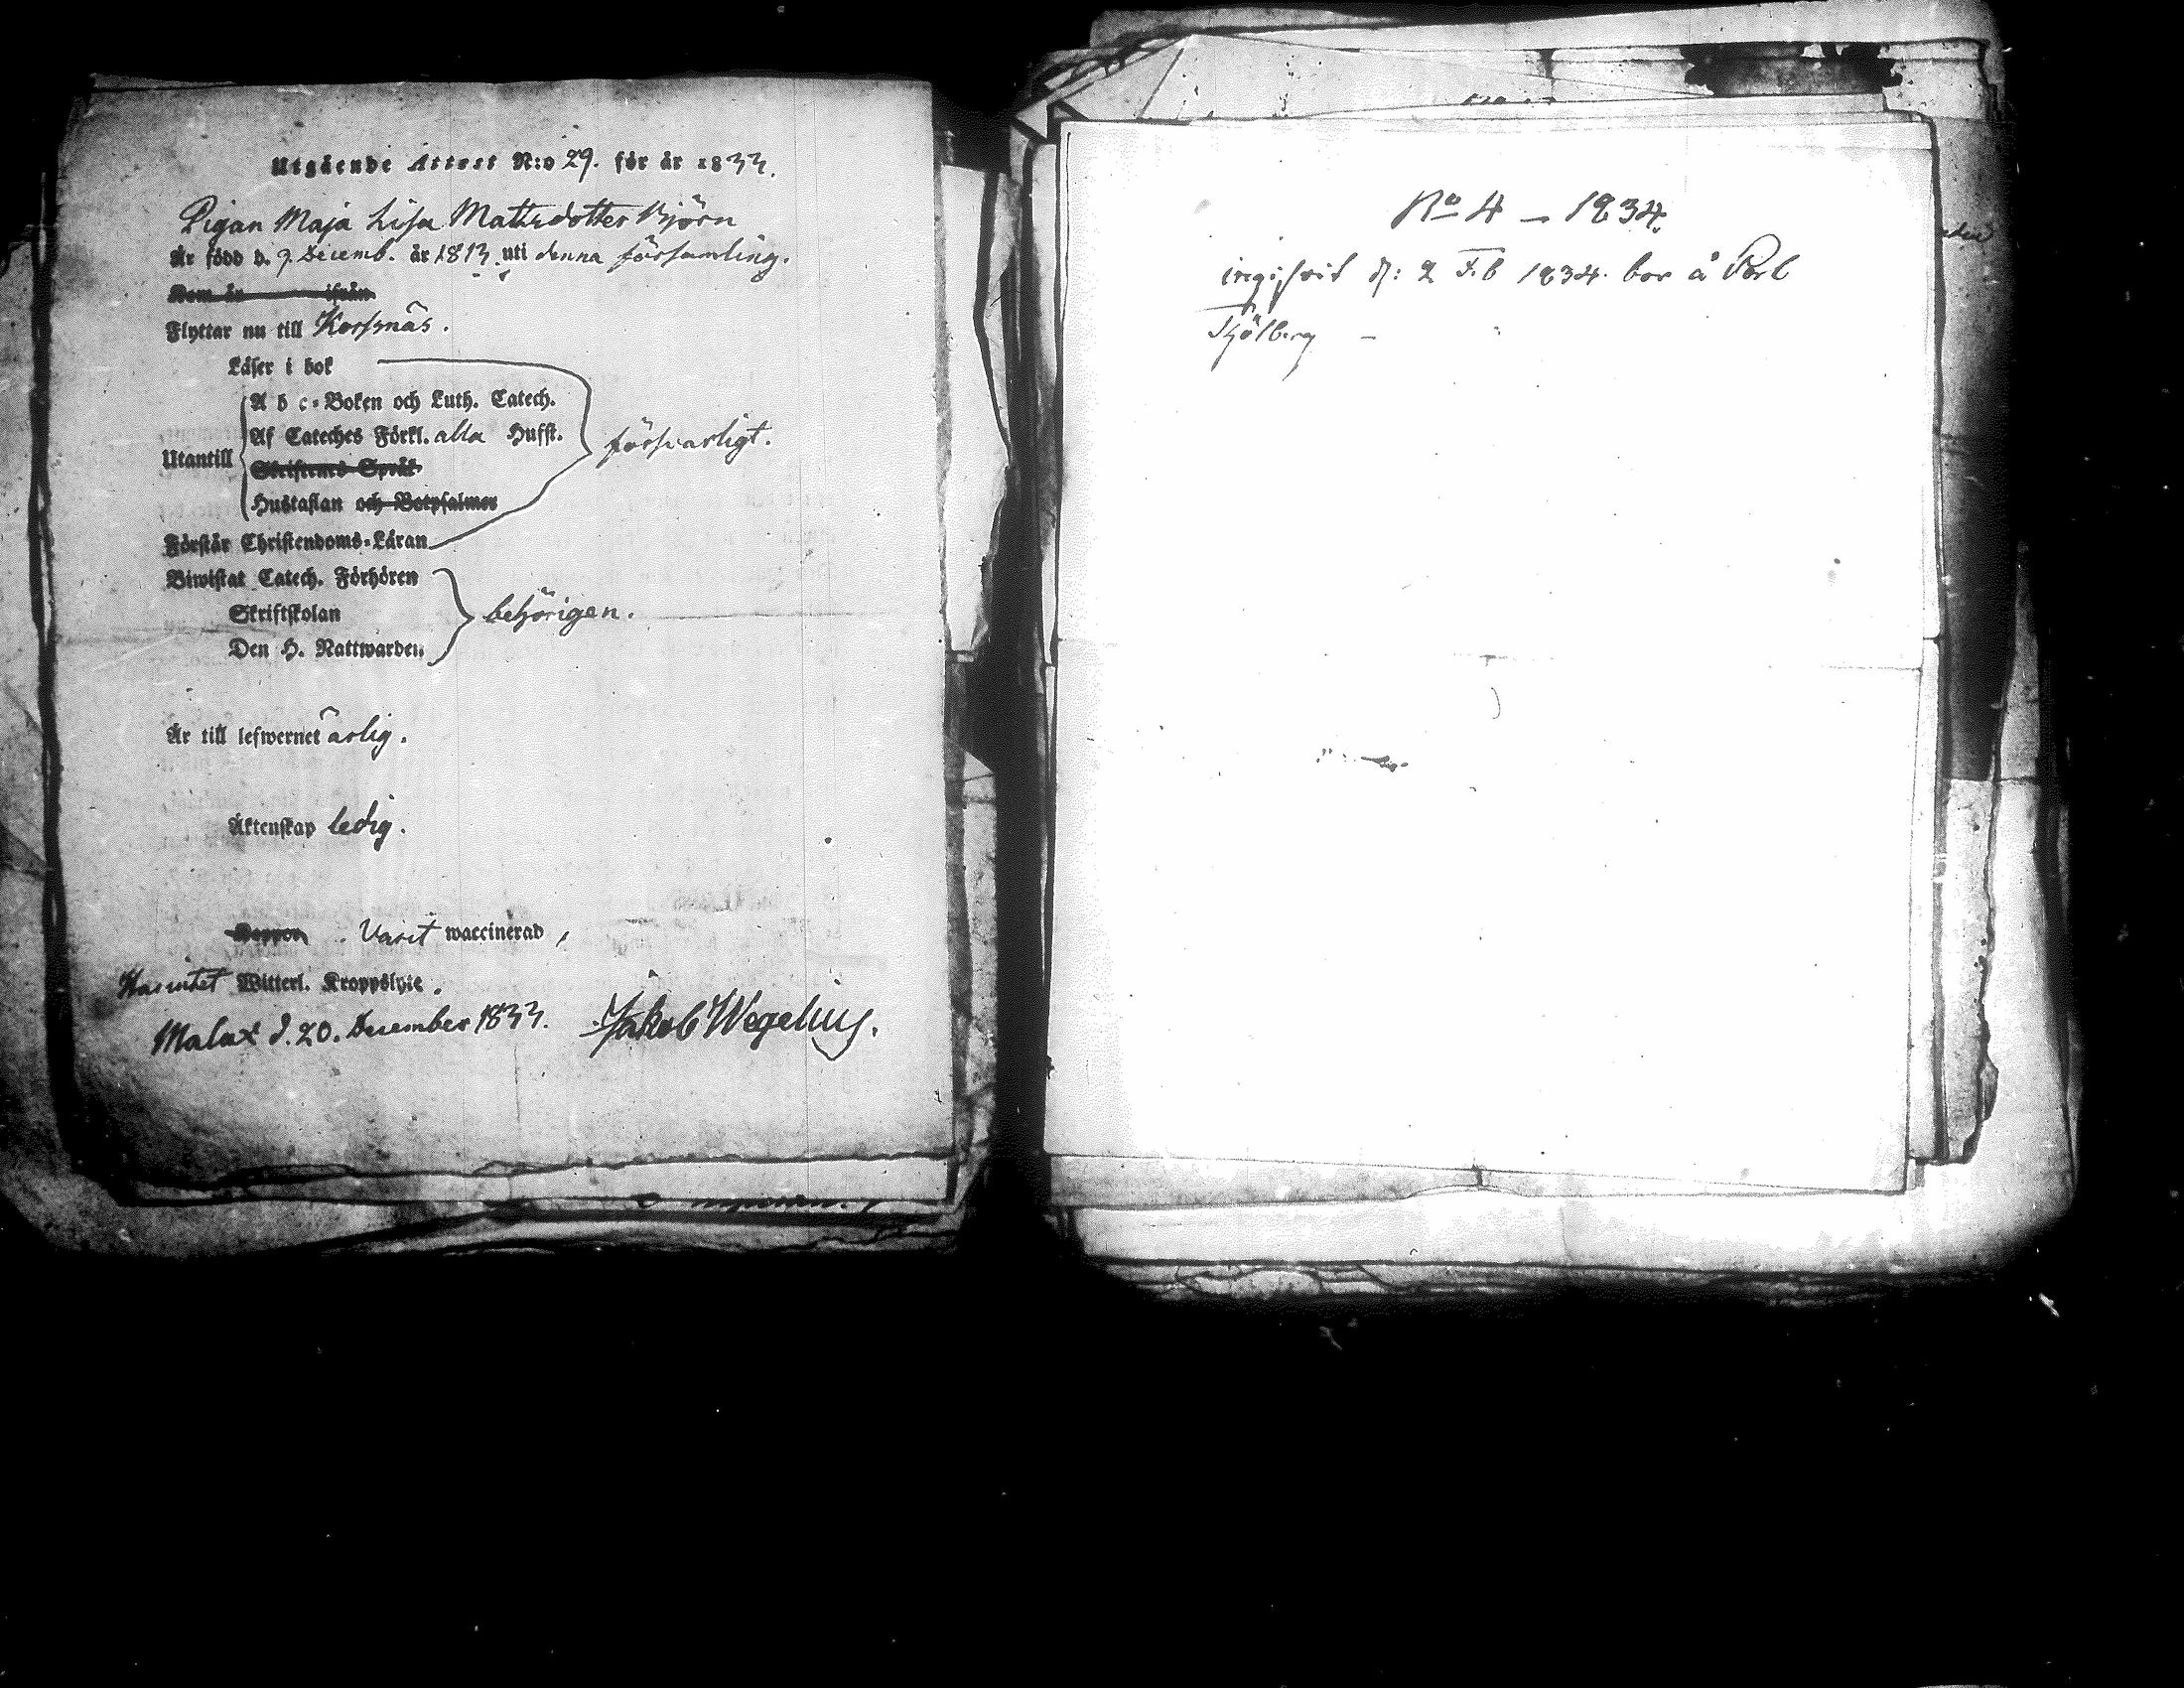 Utgående Attest N:o 29. för år 1833.
Pigan Maja Lisa Mattsdotter Björn
Är född d. 9 Decemb. år 1813 uti denna församling.
Kom år ifrån
Flyttar nu till Korsnäs.
Läser i bok
A b c-Boken och Luth. Catech.
Af Cateches Förkl. alla Hufst.
försvarligt.
Utantill
Skriftenes Språk
Hustaflan och Botpsalmer
Förstår Christendoms-Läran
Biwistat Catech. Förhören
Skriftskolan
behörigen.
Den H. Nattwarden
Är till lefwernet ärlig.
Äktenskap ledig.
Koppor. Varit waccinerad,
Har intet Witterl. Kroppslyte.
Malax d. 20. December 1833. Jakob Wegelius.
No 4 – 1834.
d: 2 Feb 1834. bor å